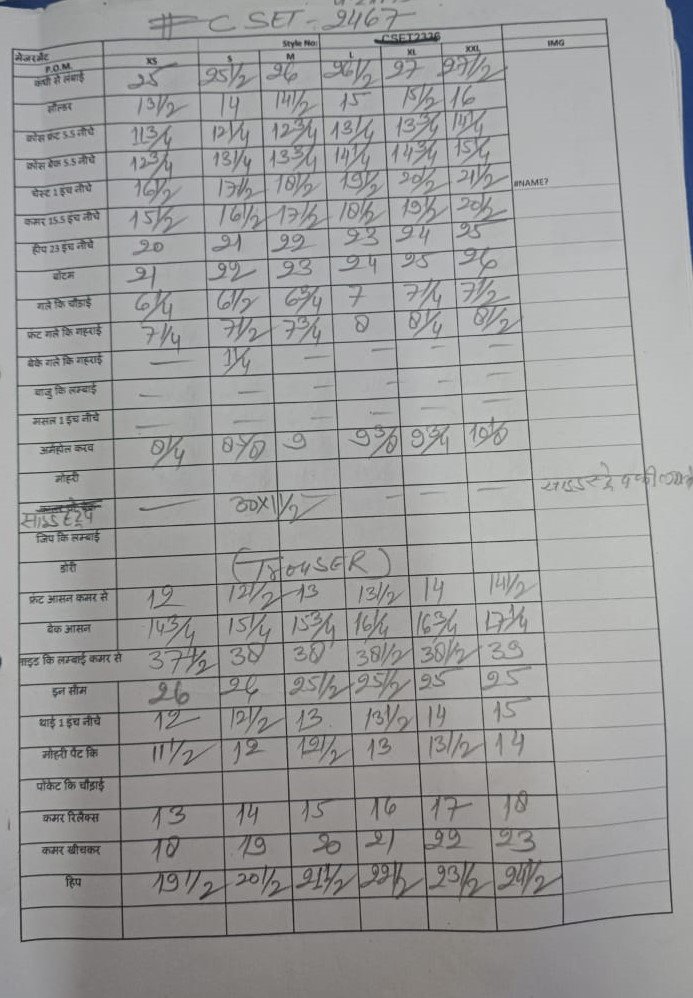 # CSET-2467
मेजरमेंट Style No: CSET2336 IMG
P.O.M. XS S M L XL XXL
कंधो से लंबाई 25 25 1/2 26 26 1/2 27 27 1/2
सोल्डर 13 1/2 14 14 1/2 15 15 1/2 16
क्रोस फ्रंट 5.5 नीचे 11 3/4 12 1/4 12 3/4 13 1/4 13 3/4 14 1/4
क्रोस बेक 5.5 नीचे 12 3/4 13 1/4 13 3/4 14 1/4 14 3/4 15 1/4
चेस्ट 1 इंच नीचे 16 1/2 17 1/2 18 1/2 19 1/2 20 1/2 21 1/2 #NAME?
कमर 15.5 इंच नीचे 15 1/2 16 1/2 17 1/2 18 1/2 19 1/2 20 1/2
हीप 23 इंच नीचे 20 21 22 23 24 25
बॉटम 21 22 23 24 25 26
गले कि चौडाई 6 1/4 6 1/2 6 3/4 7 7 1/4 7 1/2
फ्रंट गले कि गहराई 7 1/4 7 1/2 7 3/4 8 8 1/4 8 1/2
बेके गले कि गहराई — 1 1/4 — — —
बाजु कि लम्बाई — — — — — —
मसल 1 इंच नीचे — — — — — —
आर्महोल करव 8 1/4 8 7/8 9 9 3/8 9 3/4 10 1/8
मोहरी
साइड स्टेप — 30x1 1/2 — — —
जिप कि लम्बाई
डोरी (TrouSER)
फ्रंट आसन कमर से 12 12 1/2 13 13 1/2 14 14 1/2
बेक आसन 14 3/4 15 1/4 15 3/4 16 1/4 16 3/4 17 1/4
साइड कि लम्बाई कमर से 37 1/2 38 38 38 1/2 38 1/2 39
इन सीम 26 26 25 1/2 25 1/2 25 25
थाई 1 इंच नीचे 12 12 1/2 13 13 1/2 14 15
मोहरी पैंट कि 11 1/2 12 12 1/2 13 13 1/2 14
पॉकेट कि चौड़ाई
कमर रिलैक्स 13 14 15 16 17 18
कमर खीचकर 18 19 20 21 22 23
हिप 19 1/2 20 1/2 21 1/2 22 1/2 23 1/2 24 1/2